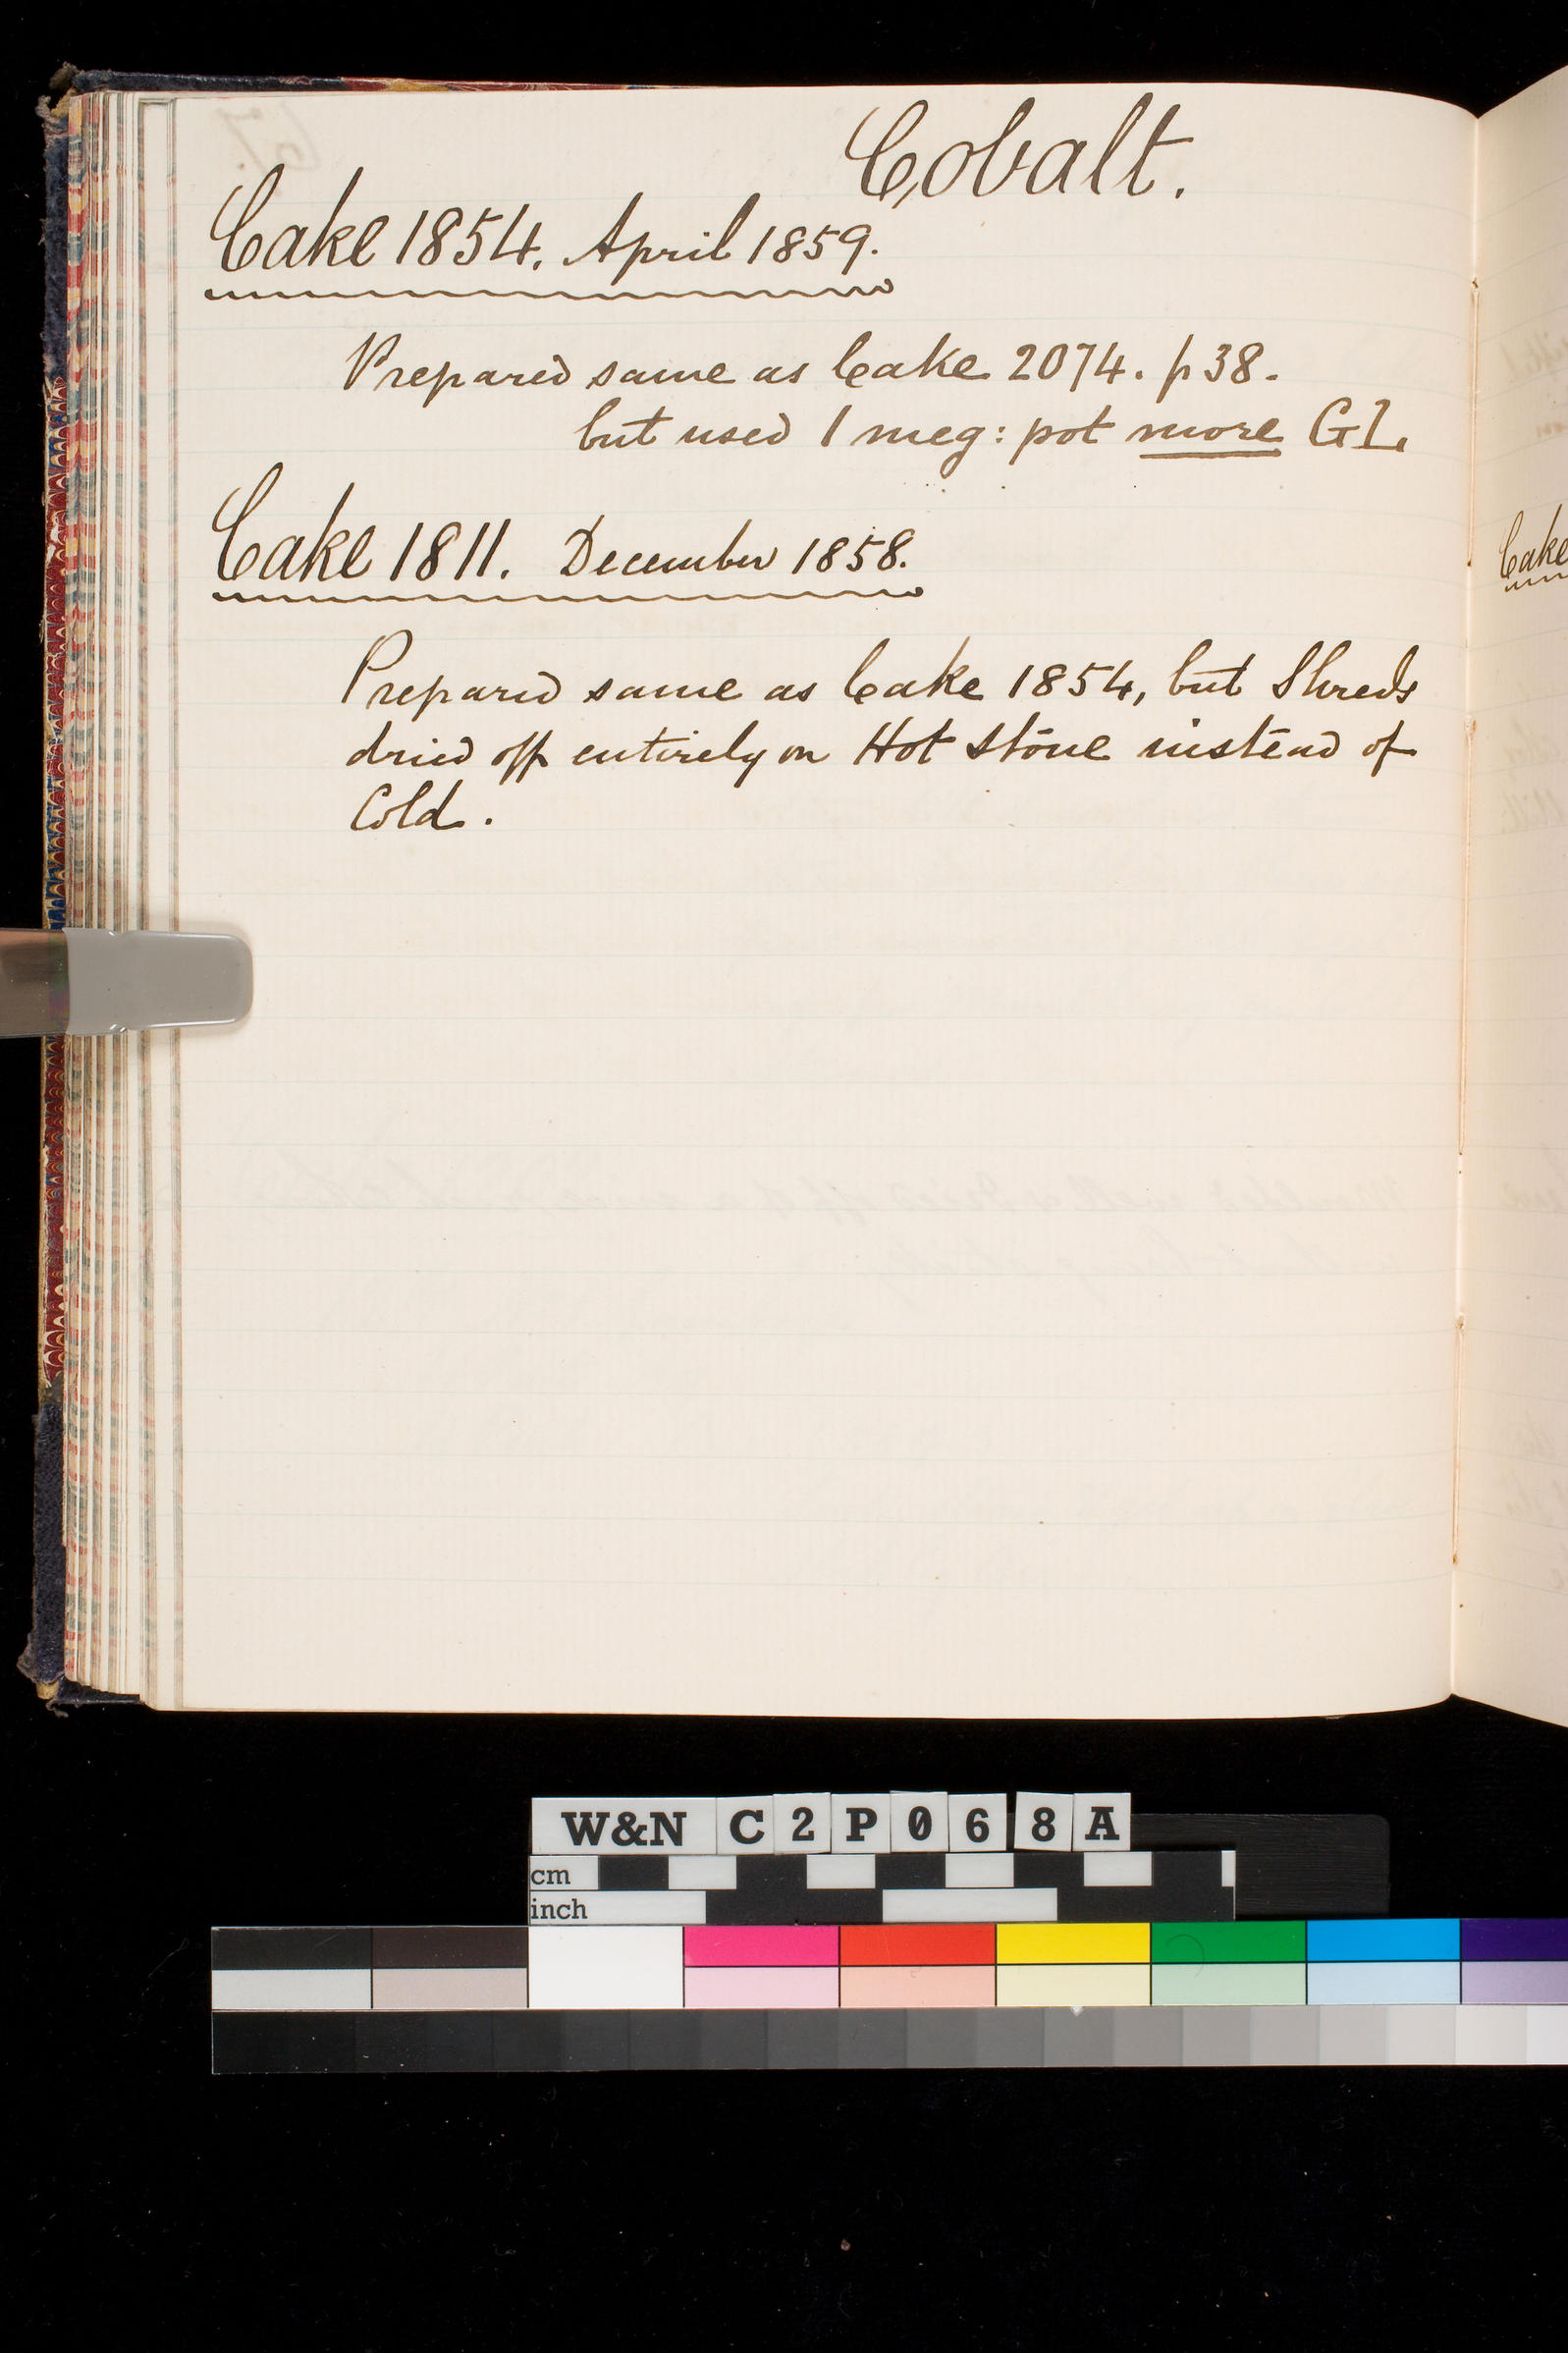 Cobalt.
Cake 1854. April 1859.
Prepared same as Cake 2074. p 38.
but used 1 meg: pot more G1.
Cake 1811. December 1858.
Prepared same as Cake 1854, but Shreds
dried off entirely on Hot Stone instead of
Cold.
Cake
W&N C2P068A
cm
inch